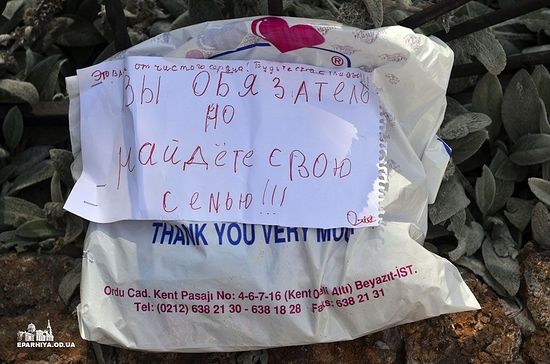 Это Вам от чистого сердца! Будьте счастливы!
®
ВЫ ОБЯЗАТЕЛЬ
НО
НАЙДЁТЕ СВОЮ
СЕМЬЮ!!!
THANK YOU VERY MUC
Ordu Cad. Kent Pasajı No: 4-6-7-16 (Kent Altı) Beyazıt-İST.
Tel: (0212) 638 21 30 - 638 18 28 Faks: 638 21 31
EPARHIYA.OD.UA